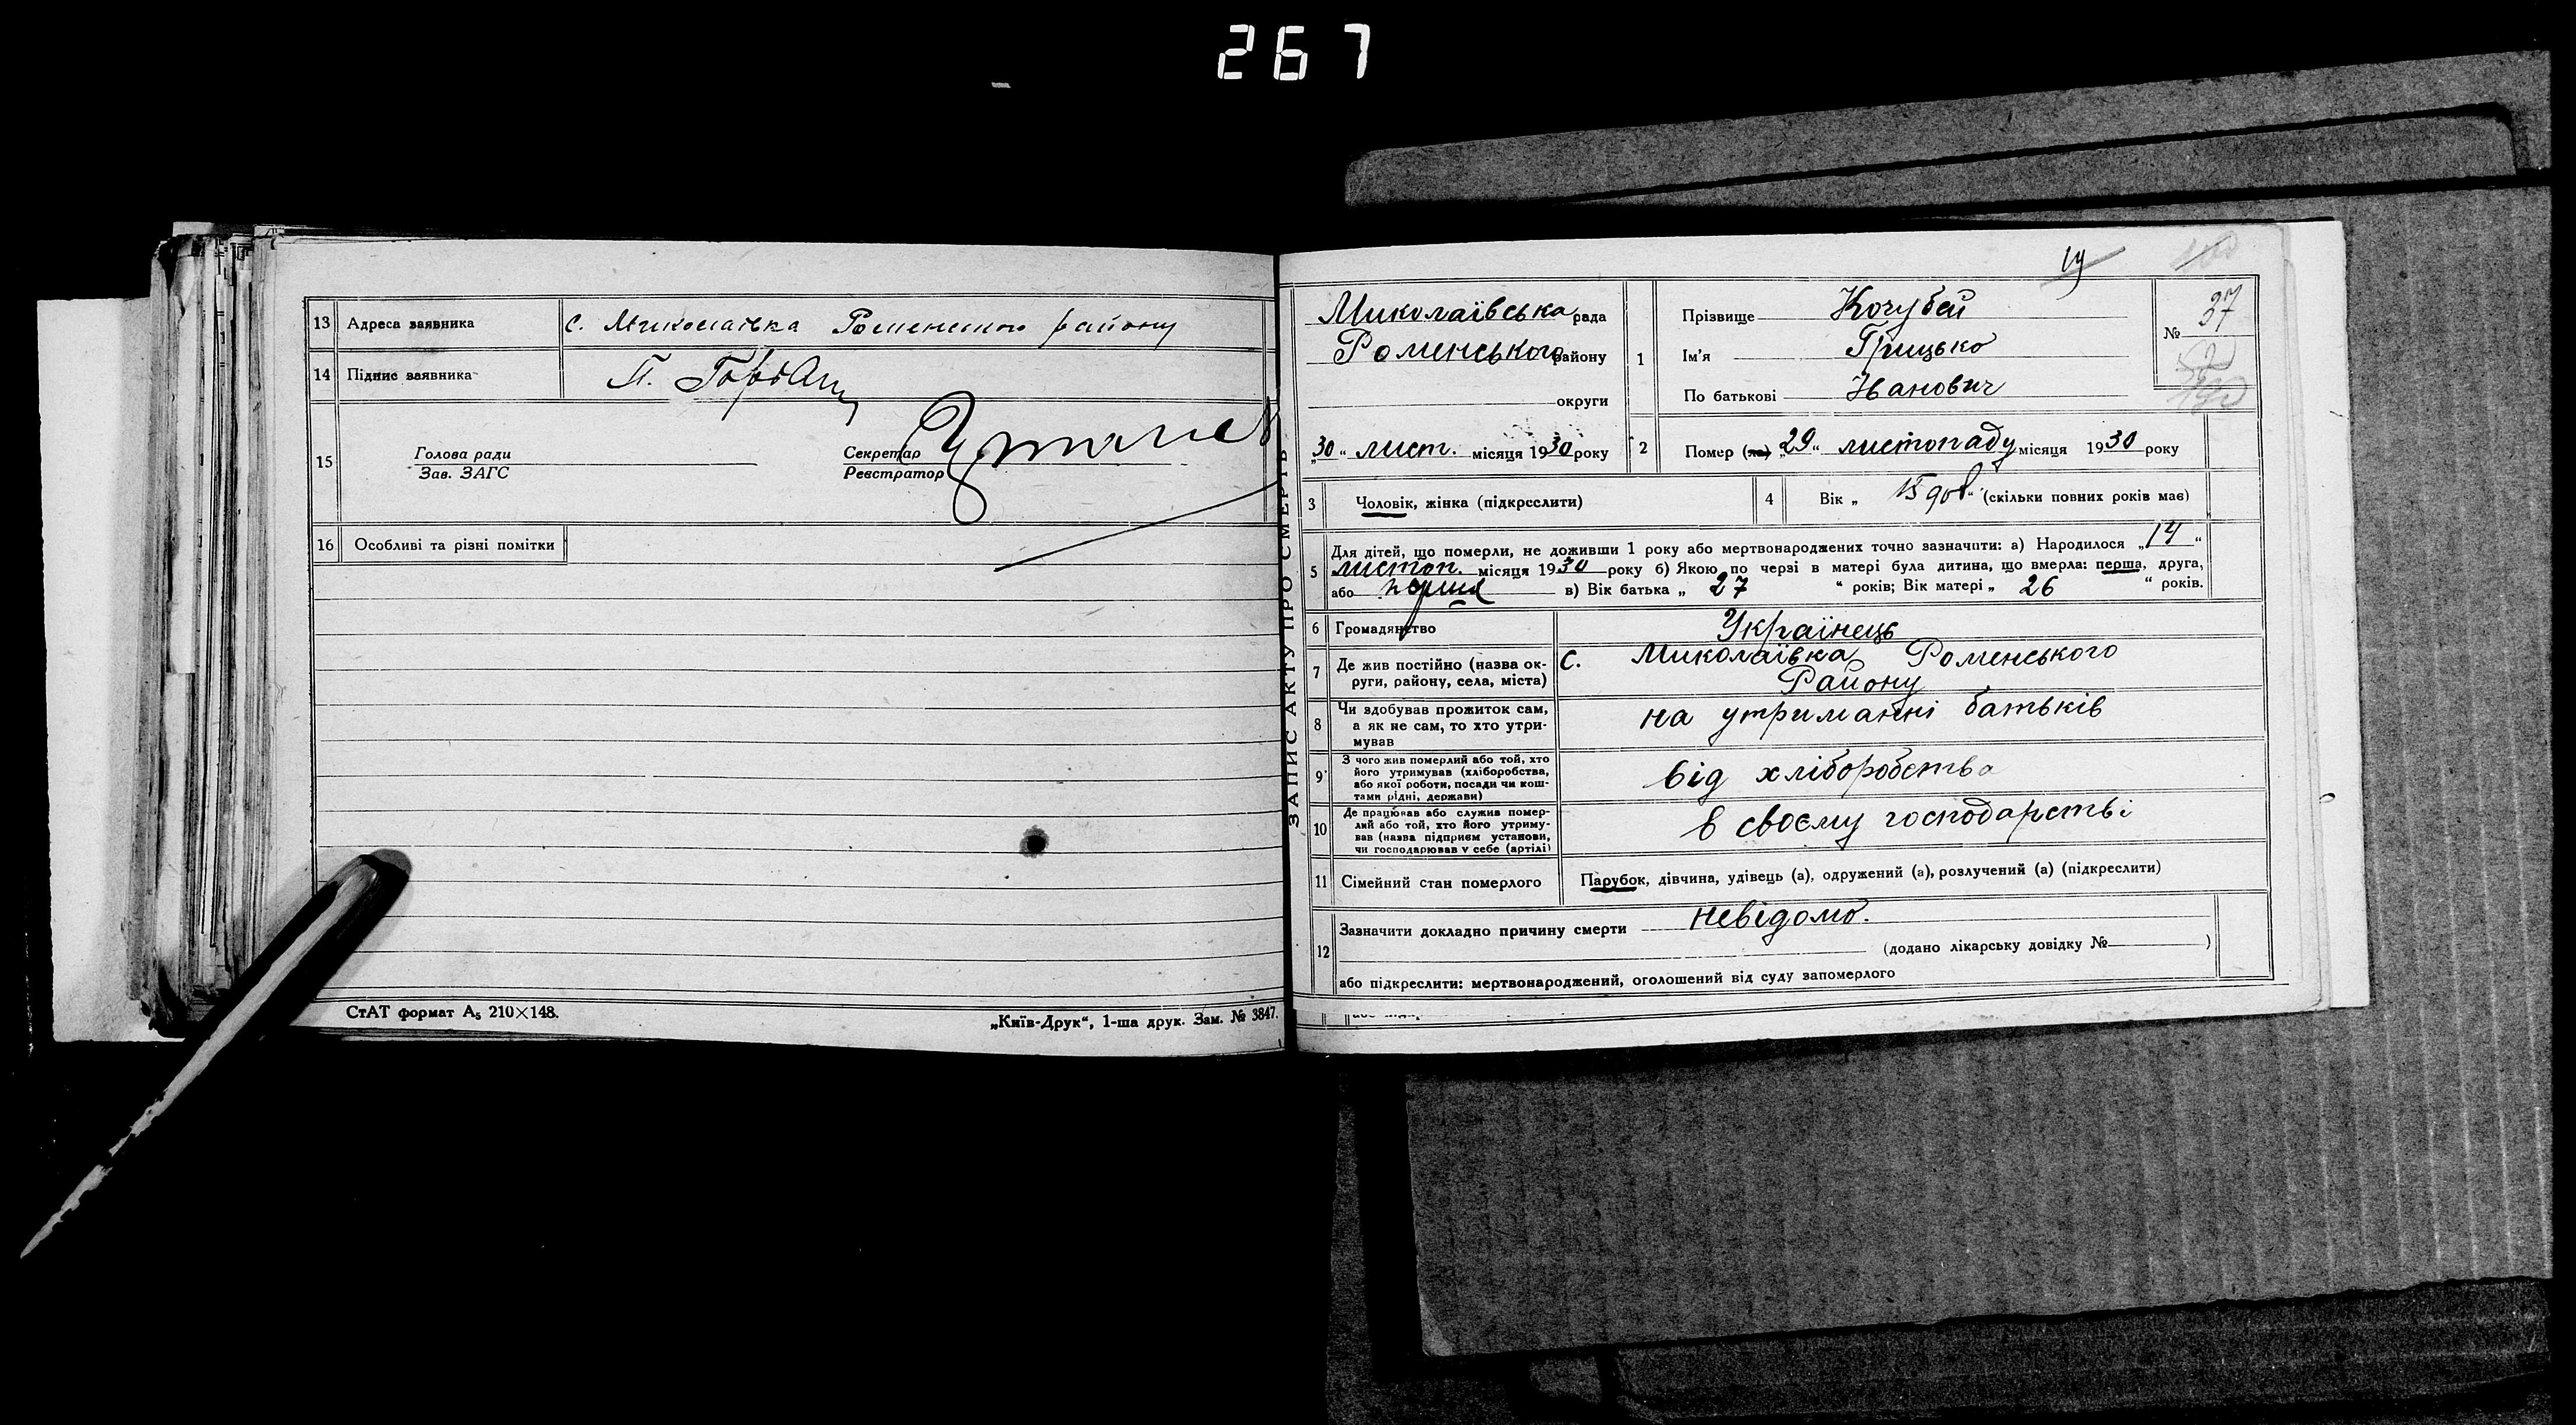 267
13 Адреса заявника с. Миколаївка Роменського району
14 Підпис заявника П.
15 Голова ради
Зав. ЗАГС
Секретар
Реєстратор
16 Особливі та різні помітки
СтАТ формат А₅ 210×148.
„Київ-Друк“, 1-ша друк. Зам. № 3847.
ЗАПИС АКТУ ПРО СМЕРТЬ
19
Миколаївська рада
Роменського району
округи
„30“ лист. місяця 1930 року
1 Прізвище Кочубей
Ім'я Грицько
По батькові Іванович
№ 37
37
2 Помер (ла) „29“ листопаду місяця 1930 року
3 Чоловік, жінка (підкреслити)
4 Вік „ 15 “ (скільки повних років має)
5 Для дітей, що померли, не доживши 1 року або мертвонароджених точно зазначити: а) Народилося „14“
листоп. місяця 1930 року б) Якою по черзі в матері була дитина, що вмерла: перша, друга,
або перша в) Вік батька „ 27 “ років; Вік матері „ 26 “ років.
6 Громадянство Українець
7 Де жив постійно (назва ок-
руги, району, села, міста)
с. Миколаївка Роменського
Району
8 Чи здобував прожиток сам,
а як не сам, то хто утри-
мував
на утриманні батьків
9 З чого жив померлий або той, хто
його утримував (хліборобства,
або якої роботи, посади чи кош-
тами рідні, держави)
від хліборобства
10 Де працював або служив помер-
лий або той, хто його утриму-
вав (назва підприєм установи,
чи господарював у себе (артілі)
в своєму господарстві
11 Сімейний стан померлого Парубок, дівчина, удівець (а), одружений (а), розлучений (а) (підкреслити)
12 Зазначити докладно причину смерти невідомо.
(додано лікарську довідку № )
або підкреслити: мертвонароджений, оголошений від суду запомерлого